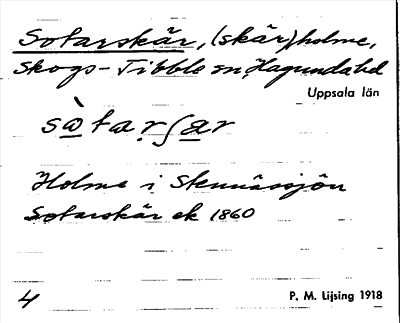 Sotarskär, (skär)holme,
Skogs-Tibble sn, Hagunda hd
Uppsala län
sò̱tarʃa̱r
Holme i Stennässjön
Sotarskär ek 1860
4
P. M. Lijsing 1918